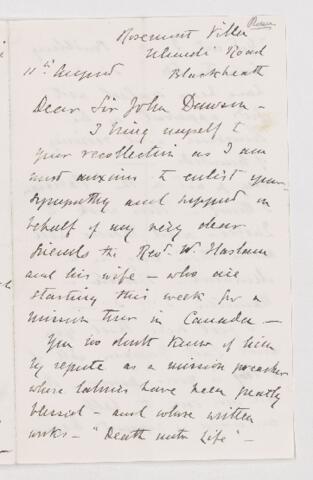 Rosemont Villa
Ulundi Road
11th August Blackheath
Dear Sir John Dawson -
I bring myself to
your recollection as I am
most anxious to enlist your
sympathy and support on
behalf of my very dear
friends the Revd. W. Haslam
and his wife - who are
starting this week for a
mission tour in Canada. -
You no doubt know of him
by repute as a mission preacher
whose labours have been greatly
blessed - and whose written
works - "Death unto Life" -